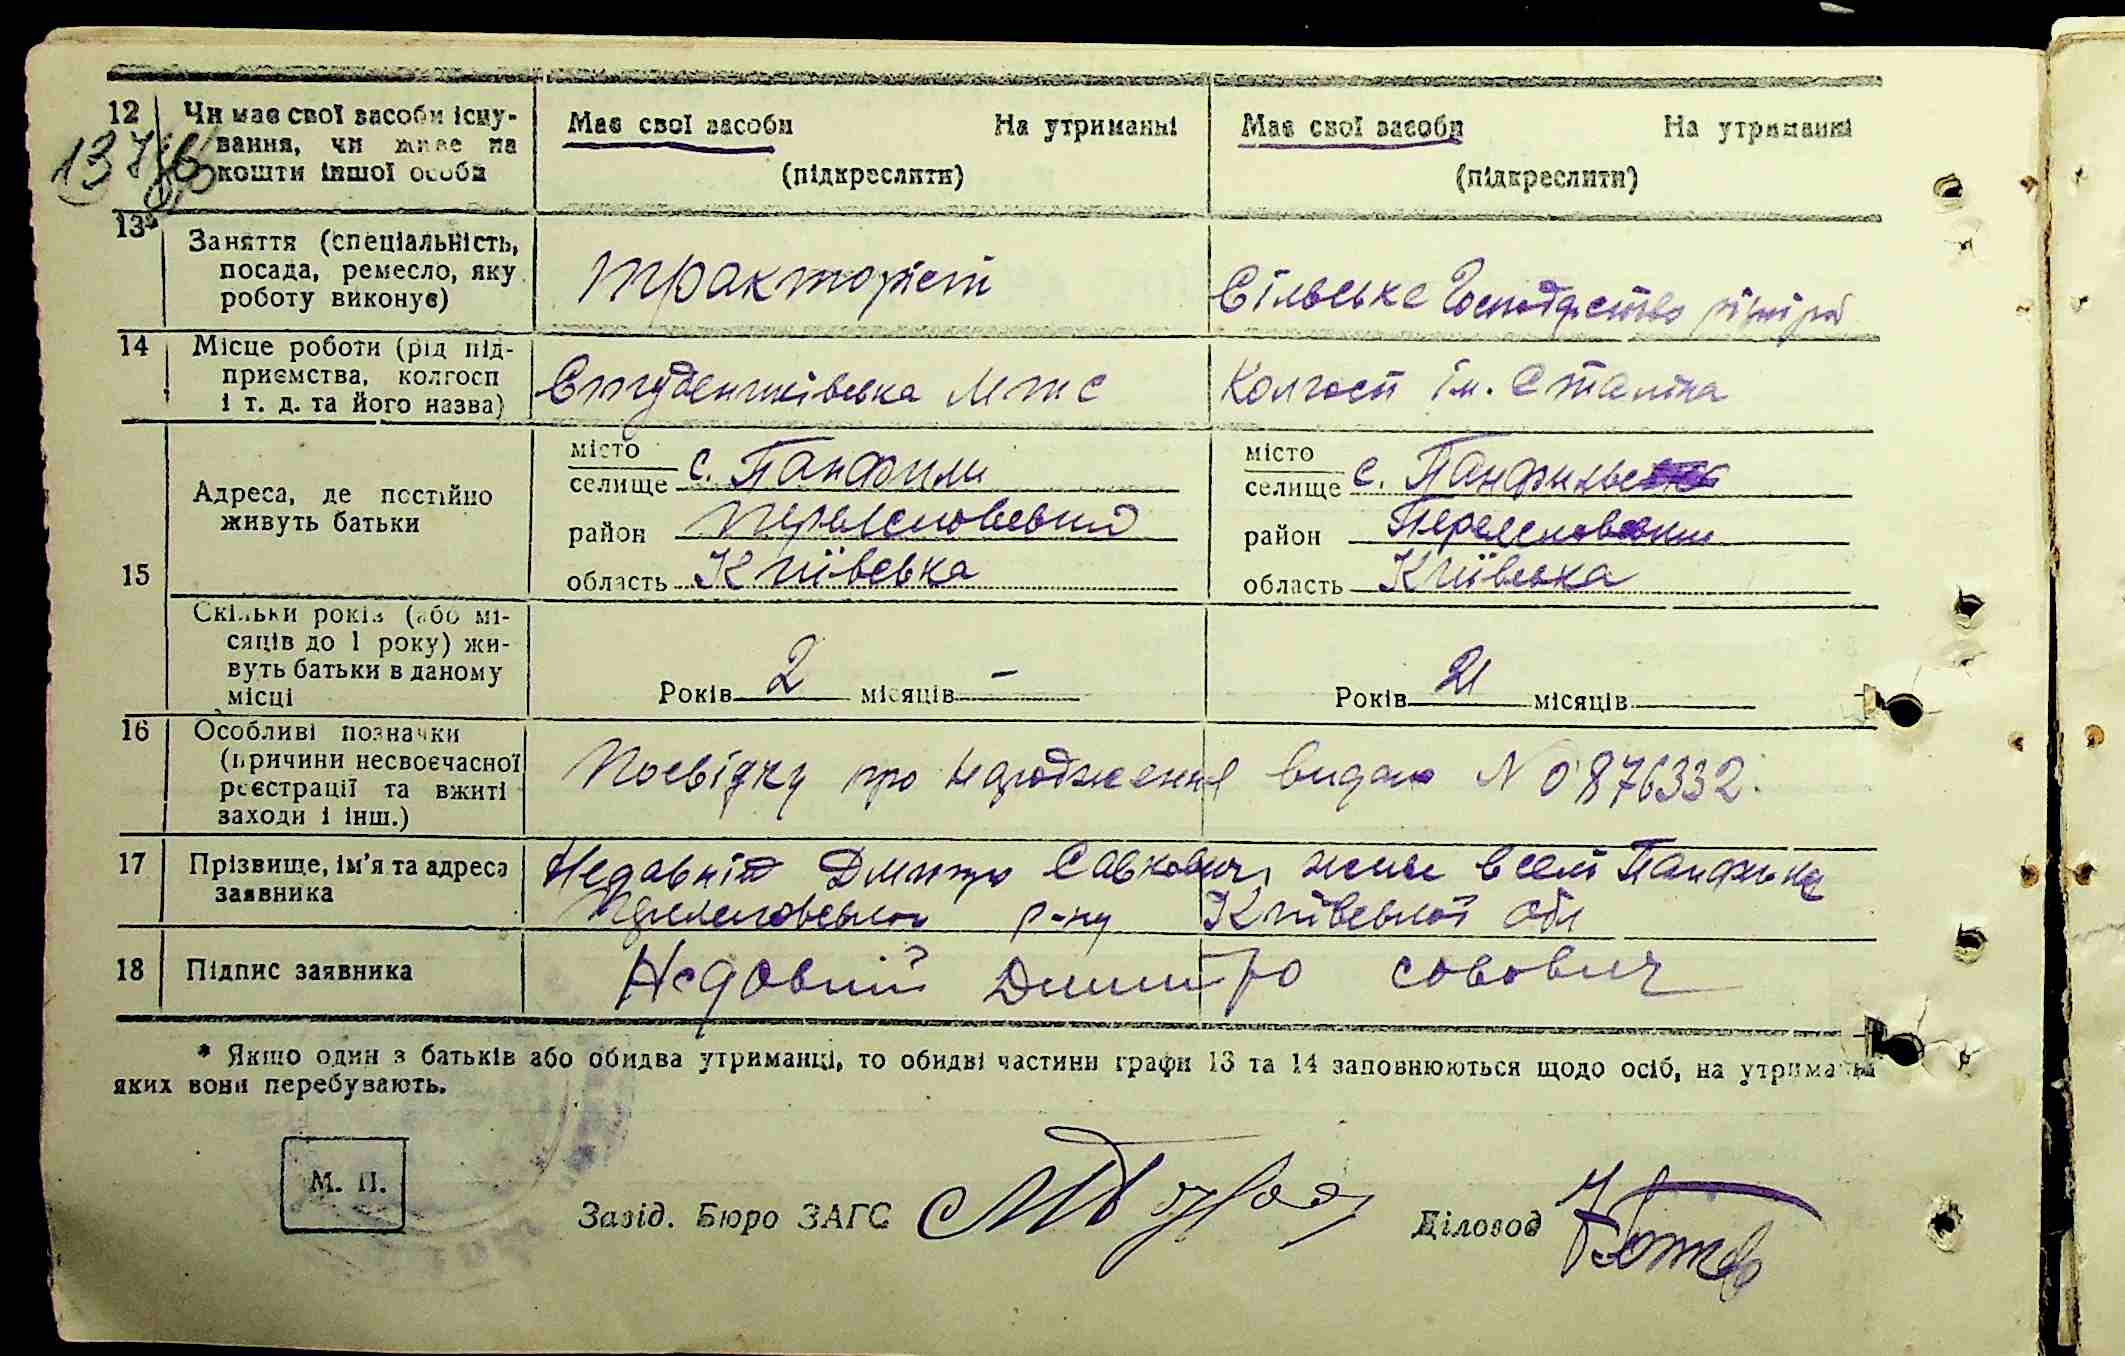 12 Чи має свої засоби існу-
вання, чи живе на
кошти іншої особи
Має свої засоби На утриманні
(підкреслити)
Має свої засоби На утриманні
(підкреслити)
137
13* Заняття (спеціальність,
посада, ремесло, яку
роботу виконує)
тракторіст
Сільське Господарство
14 Місце роботи (рід під-
приємства, колгосп
і т. д. та його назва)
Студеніківська МТС
Колгосп ім. Сталіна
15 Адреса, де постійно
живуть батьки
місто
селище с. Панфили
район Переяславський
область Київська
місто
селище с. Панфильє
район Переяславський
область Київська
Скільки років (або мі-
сяців до 1 року) жи-
вуть батьки в даному
місці
Років 2 місяців –
Років 21 місяців
16 Особливі позначки
(причини несвоєчасної
реєстрації та вжиті
заходи і інш.)
Посвідку про народження видано № 0876332.
17 Прізвище, ім'я та адреса
заявника
Недавній Дмитро Савкович живе в селі
Переяславського р-ну Київської обл
18 Підпис заявника
Недовний Дмитро совович
* Якщо один з батьків або обидва утриманці, то обидві частини графи 13 та 14 заповнюються щодо осіб, на утриманні
яких вони перебувають.
М. П.
Завід. Бюро ЗАГС
Діловод